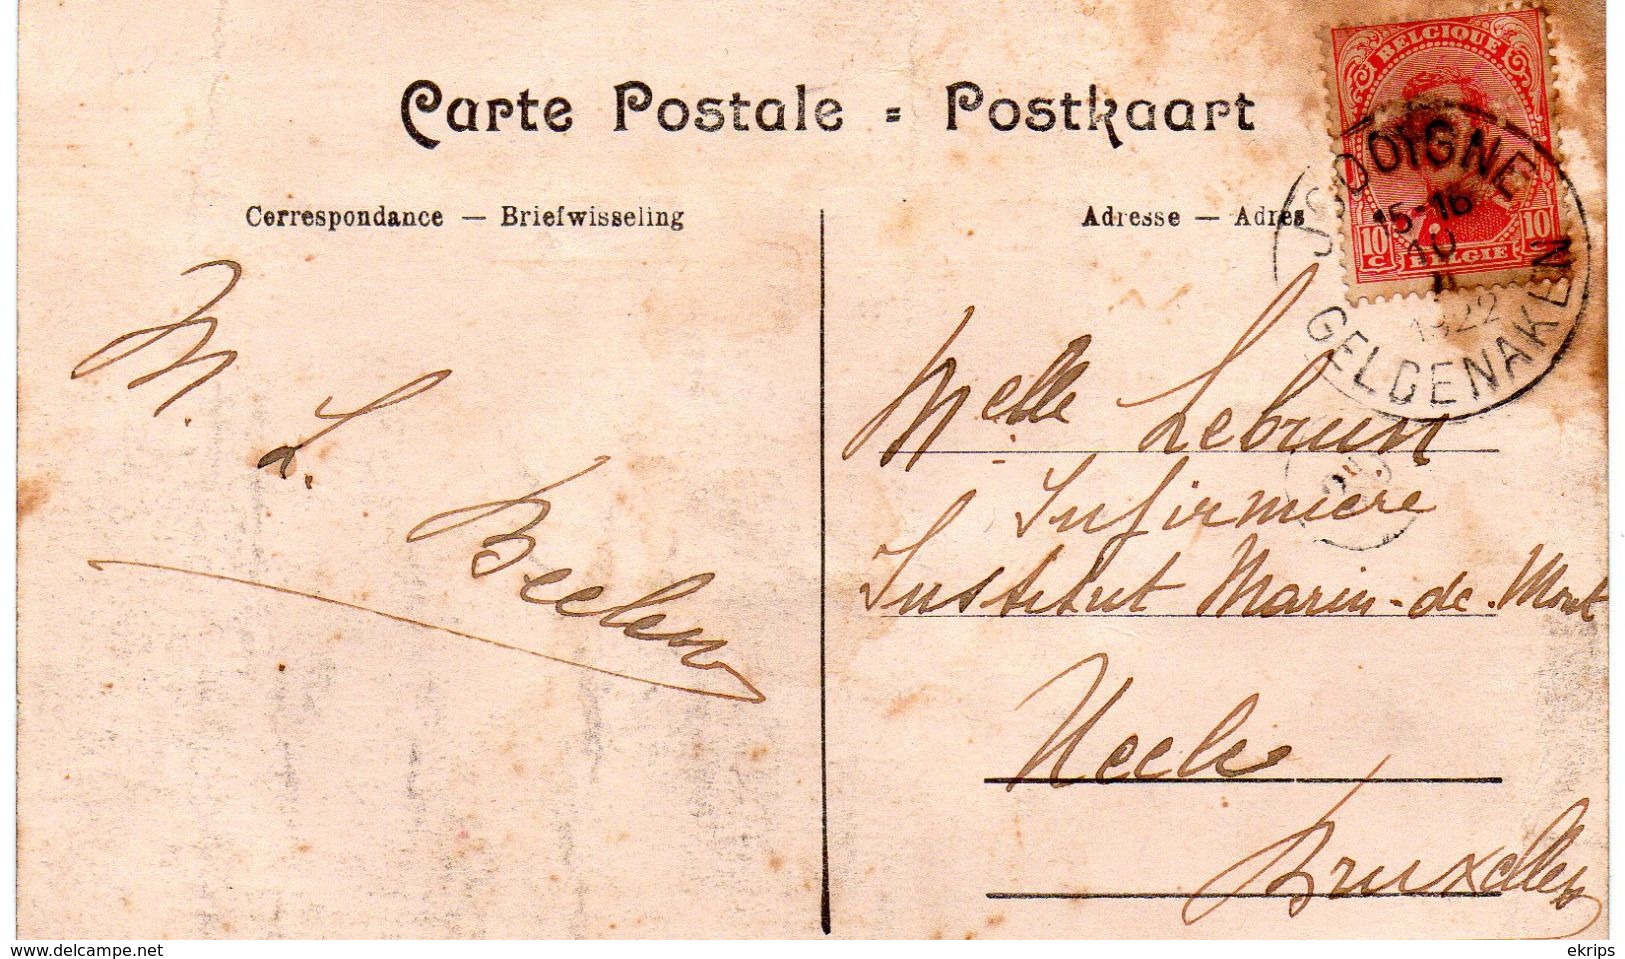 Carte Postale = Postkaart
BELGIQUE
10 c 10 c
BELGIË
JODOIGNE
15-16
1922
GELDENAKEN
Correspondance — Briefwisseling
Adresse — Adres
M. L. Beelen
Melle Lebrun
Infirmière
Institut Marin-de-Mont
Uccle
Bruxelles
delcampe.net
ekrips